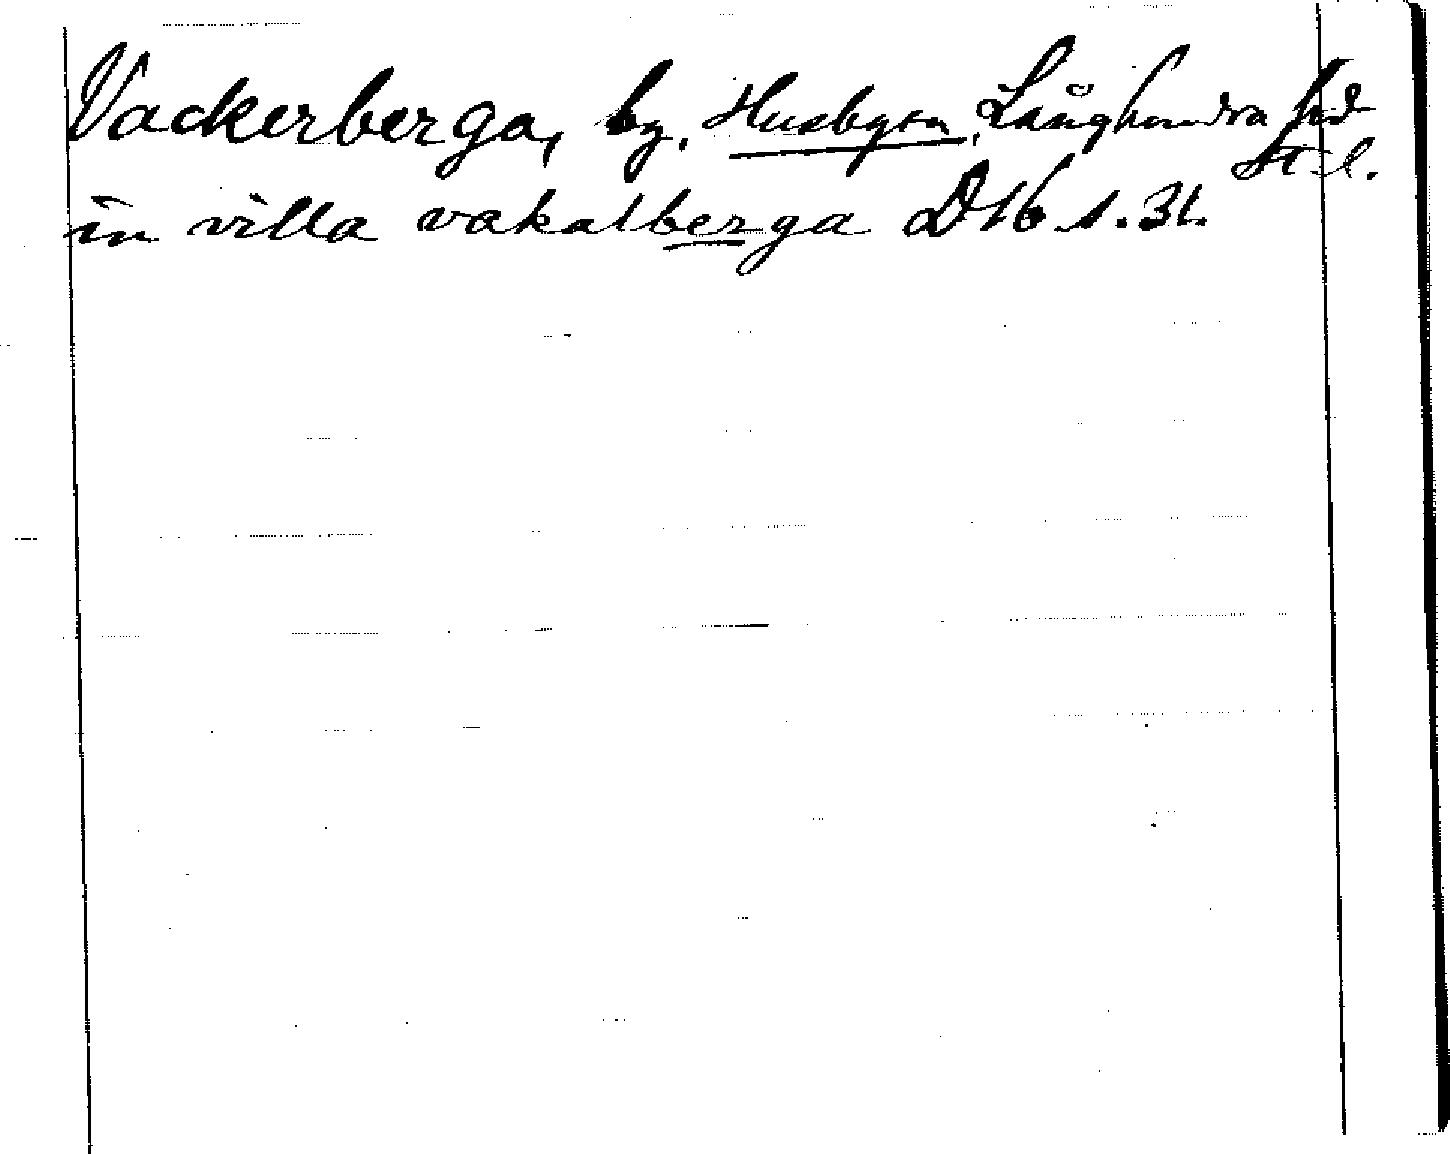 Vackerberga, by, Husby sn, Långhundra hd
St. l.
in villa vakalberga D16 s. 31.